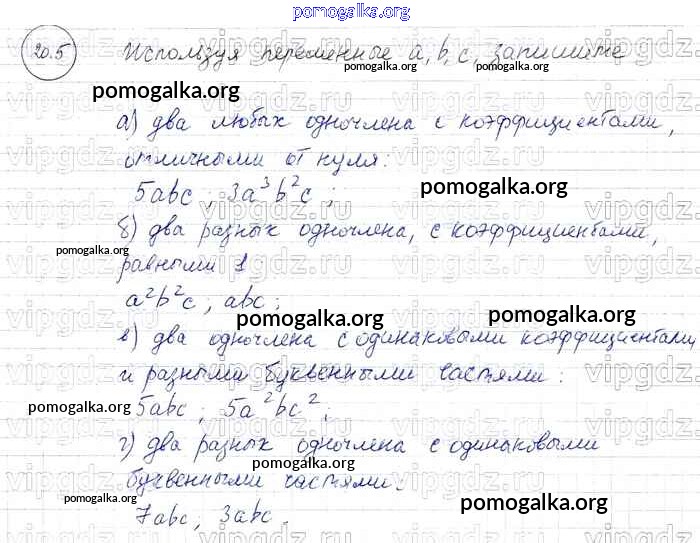 pomogalka.org
20.5 Используя переменные a, b, c, запишите
pomogalka.org pomogalka.org
pomogalka.org
а) два любых одночлена с коэффициентами,
отличными от нуля:
vipgdz.ru vipgdz.ru vipgdz.ru
5abc ; 3a³b²c ;
pomogalka.org
б) два разных одночлена, с коэффициентами,
pomogalka.org
равными 1
a²b²c ; abc ;
pomogalka.org pomogalka.org
в) два одночлена с одинаковыми коэффициентами
и разными буквенными частями :
pomogalka.org 5abc ; 5a²bc² ;
pomogalka.org
г) два разных одночлена с одинаковыми
pomogalka.org
буквенными частями.
pomogalka.org pomogalka.org
7abc ; 3abc .